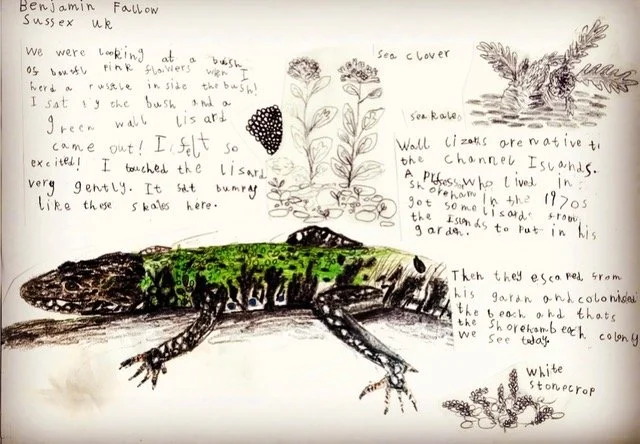 Benjamin Fallow
Sussex uk
We were looking at a bush
of pink flowers when I
herd a rustle inside the bush!
I sat by the bush and a
green wall lisard
came out! I felt so
excited! I touched the lisard
very gently. It
like these skales here.
sea clover
sea kale
Wall lizards are native to
the Channel Islands.
A who lived in
shoreham in the 1970s
got some lisards from
the Islands to put in his
garden.
Then they escaped from
his garan and colonised
the beach and thats
the Shoreham beach colony
we see today.
white
stonecrop